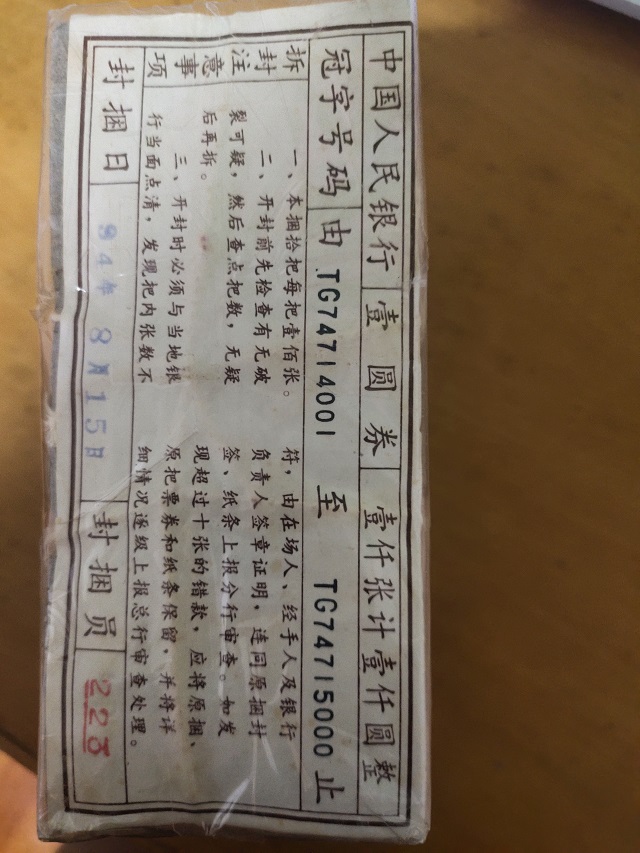 中国人民银行 壹圆券 壹仟张计壹仟圆整
冠字号码 由 TG74714001 至 TG74715000 止
拆封注意事项
一、本捆拾把每把壹佰张。
二、开封前先检查有无破
裂可疑，然后查点把数，无疑
后再拆。
三、开封时必须与当地银
行当面点清，发现把内张数不
符，由在场人、经手人及银行
负责人签章证明，连同原捆封
签、纸条上报分行审查。如发
现超过十张的错款，应将原捆、
原把票券和纸条保留，并将详
细情况逐级上报总行审查处理。
封捆日 94年8月15日 封捆员 223